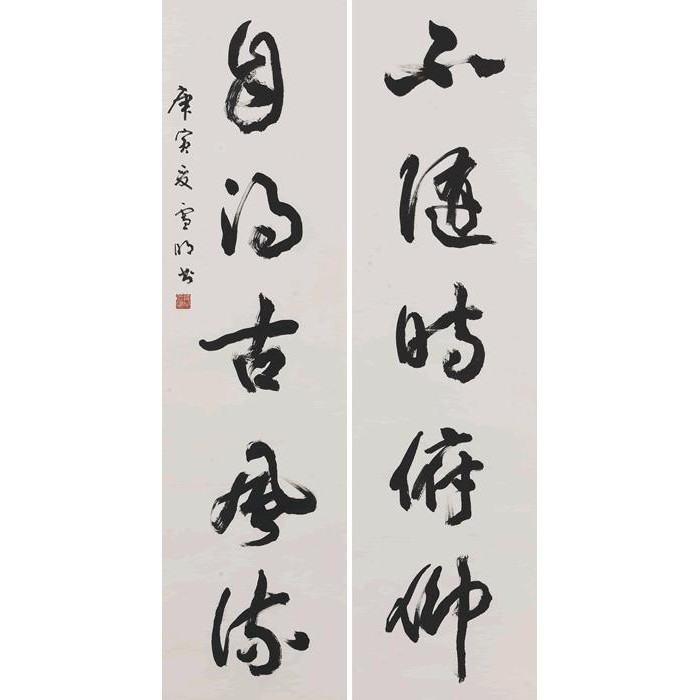 不随時俯仰
自得古風流
庚寅夏雪明书